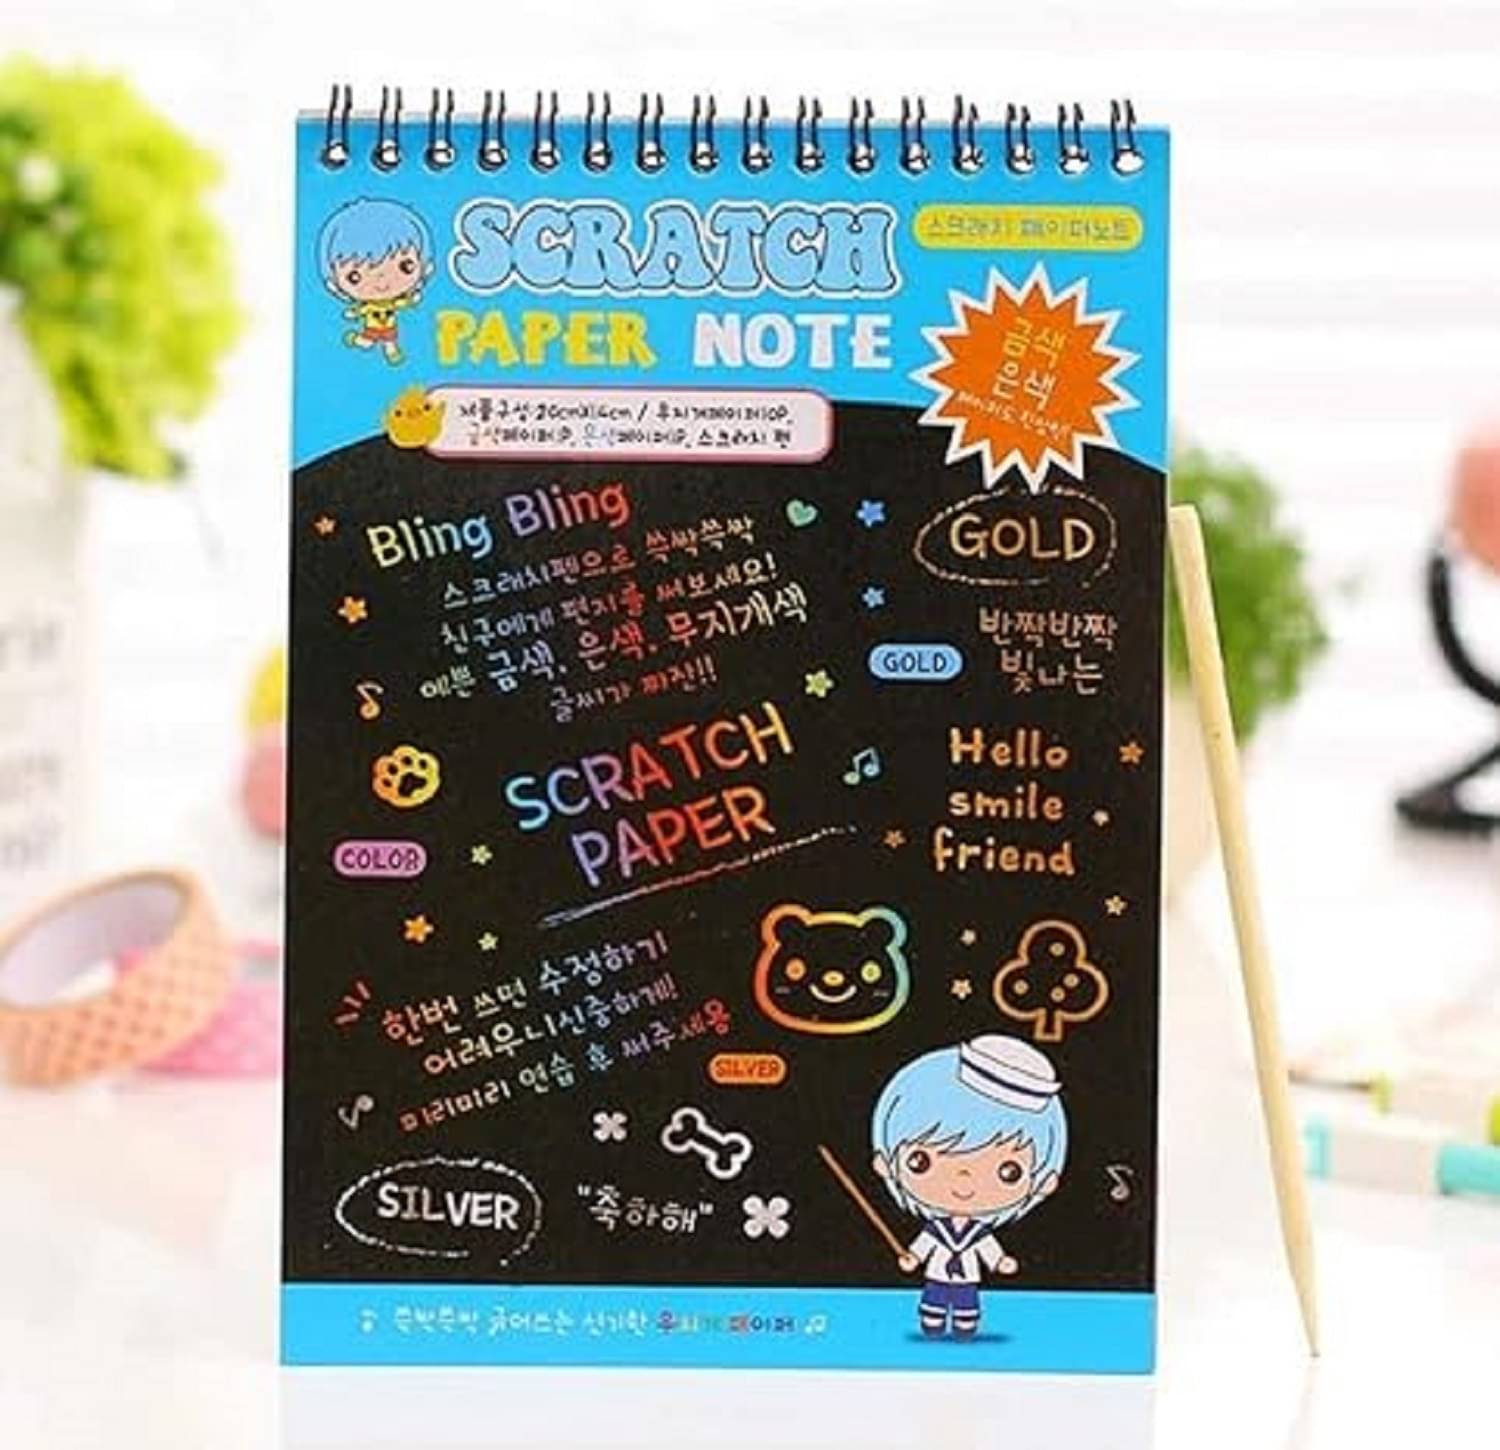 SCRATCH
스크래치 페이퍼노트
PAPER NOTE
금색
은색
제품구성:20cmX14cm / 무지개페이퍼10P,
금색페이퍼1P, 은색페이퍼1P, 스크래치 펜
Bling Bling
스크래치펜으로 쓱싹쓱싹
친구에게 편지를 써보세요!
예쁜 금색, 은색, 무지개색
글씨가 짜잔!!
GOLD
반짝반짝
빛나는
GOLD
SCRATCH
PAPER
Hello
smile
friend
COLOR
한번 쓰면 수정하기
어려우니신중하게!
미리미리 연습 후 써주세용
SILVER
SILVER
"축하해"
쓱싹쓱싹 긁어쓰는 신기한 무지개 페이퍼